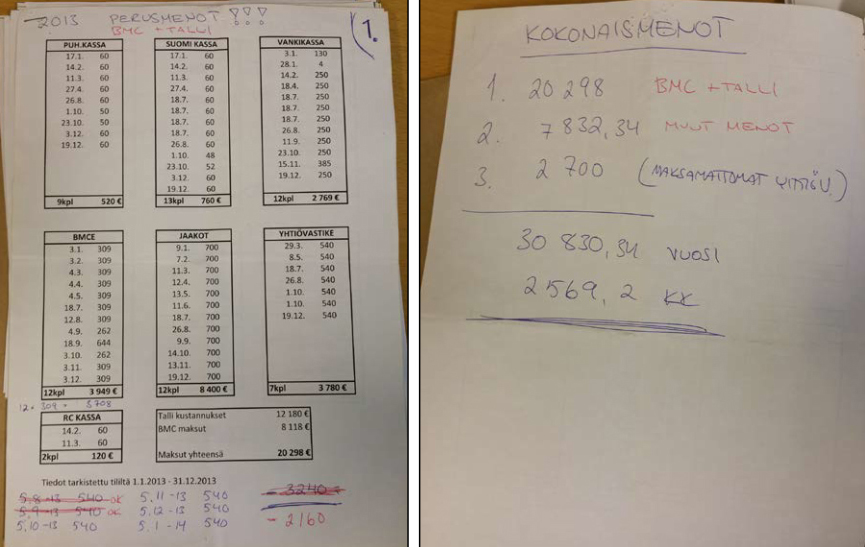 2013 PERUSMENOT !!!
BMC + TALLI
1.
PUH.KASSA
17.1. 60
14.2. 60
11.3. 60
27.4. 60
26.8. 60
1.10. 50
23.10. 50
3.12. 60
19.12. 60
9kpl 520 €
SUOMI KASSA
17.1. 60
14.2. 60
11.3. 60
27.4. 60
18.7. 60
18.7. 60
18.7. 60
18.7. 60
26.8. 60
1.10. 48
23.10. 52
3.12. 60
19.12. 60
13kpl 760 €
VANKIKASSA
3.1. 130
28.1. 4
14.2. 250
18.4. 250
18.7. 250
18.7. 250
18.7. 250
26.8. 250
11.9. 250
23.10. 250
15.11. 385
19.12. 250
12kpl 2 769 €
BMCE
3.1. 309
3.2. 309
4.3. 309
4.4. 309
4.5. 309
18.7. 309
12.8. 309
4.9. 262
18.9. 644
3.10. 262
3.11. 309
3.12. 309
12kpl 3 949 €
12 x 309 = 3708
JAAKOT
9.1. 700
7.2. 700
11.3. 700
12.4. 700
13.5. 700
11.6. 700
18.7. 700
26.8. 700
9.9. 700
14.10. 700
13.11. 700
19.12. 700
12kpl 8 400 €
YHTIÖVASTIKE
29.3. 540
8.5. 540
18.7. 540
26.8. 540
1.10. 540
1.10. 540
19.12. 540
7kpl 3 780 €
RC KASSA
14.2. 60
11.3. 60
2kpl 120 €
Talli kustannukset 12 180 €
BMC maksut 8 118 €
Maksut yhteensä 20 298 €
Tiedot tarkistettu tililtä 1.1.2013 - 31.12.2013
5.8-13 540 OK
5.9-13 540 OK
5.10-13 540
5.11-13 540
5.12-13 540
5.1-14 540
- 3240
- 2160
KOKONAISMENOT
1. 20 298 BMC + TALLI
2. 7 832,34 MUUT MENOT
3. 2 700 (MAKSAMATTOMAT
30 830,34 VUOSI
2569,2 KK